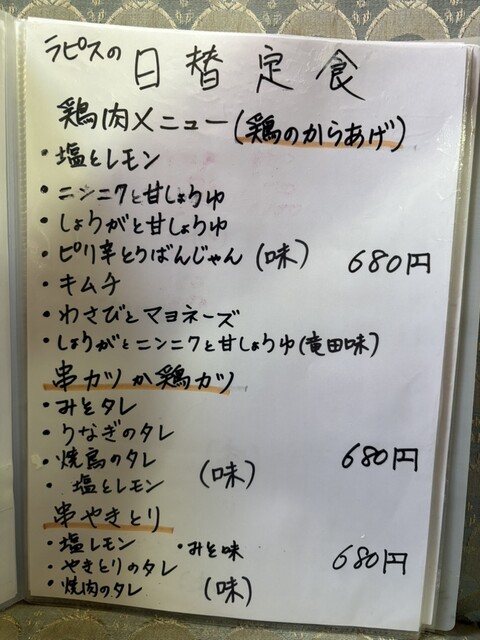 ラピスの 日替定食
鶏肉メニュー(鶏のからあげ)
・塩とレモン
・ニンニクと甘しょうゆ
・しょうがと甘しょうゆ
・ピリ辛とうばんじゃん (味) 680円
・キムチ
・わさびとマヨネーズ
・しょうがとニンニクと甘しょうゆ(竜田味)
串カツか鶏カツ
・みそタレ
・うなぎのタレ
・焼鳥のタレ (味) 680円
・塩とレモン
串やきとり
・塩レモン ・みそ味
・やきとりのタレ 680円
・焼肉のタレ (味)